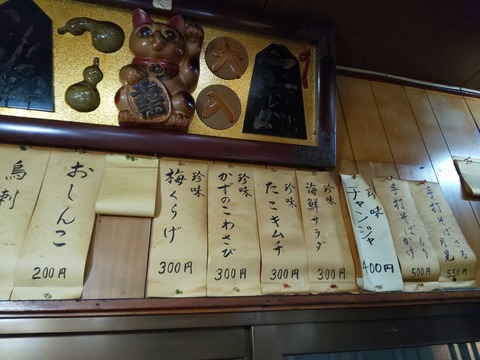 手打そば月見
550円
手打そばかけ
500円
珍味
チャンジャ
400円
海鮮サラダ
珍味
300円
たこキムチ
珍味
300円
かずのこわさび
珍味
300円
梅くらげ
珍味
300円
おしんこ
200円
烏刺